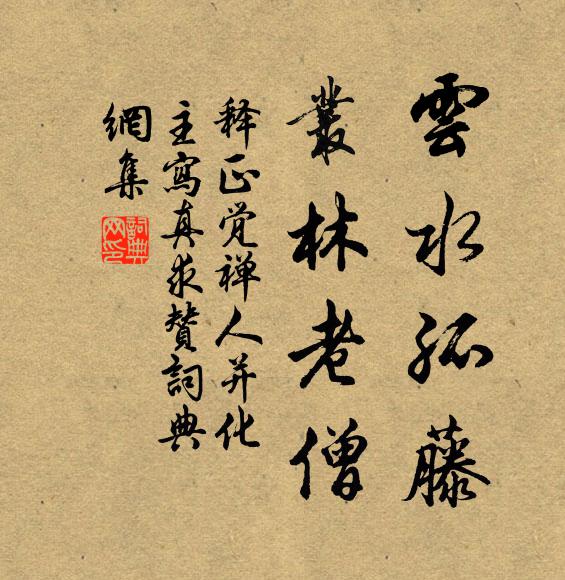 雲水孤藤
叢林老僧
释正觉禅人并化
主寫真求贊詞典
網集
詞典網印